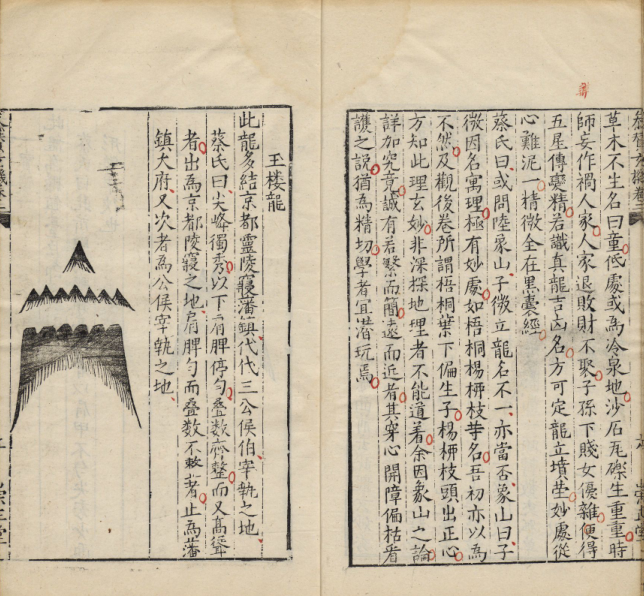 草木不生名曰童低處或為冷泉地沙石瓦礫生重重時
師妄作禍人家人家退敗財不聚子孫下賤女優雜便得
五星傳變精若識真龍吉凶名方可定龍立墳塋妙處從
心難泥一樣微全在黑囊經
蔡氏曰或問陸象山子微立龍名不一亦當否象山曰子
微因名寓理極有妙處如梧桐楊柳枝等名吾初亦以為
不然及觀後卷所謂梧桐葉下偏生子楊柳枝頭出正心
方知此理玄妙非深探地理者不能道着余因象山之論
詳加究竟誠有若繫而簡遠而近者其穿心開障偏枯看
護之說猶為精切學者宜潛玩焉
玉楼龍
此龍多結京都靈陵寢藩鎮代代三公侯伯宰執之地
蔡氏曰尖峰獨秀以下肩脾停勻叠数齊整而又髙聳
者出為京都陵寢之地肩脾勻而叠数不欹者止為藩
鎮大府又次者為公侯宰執之地